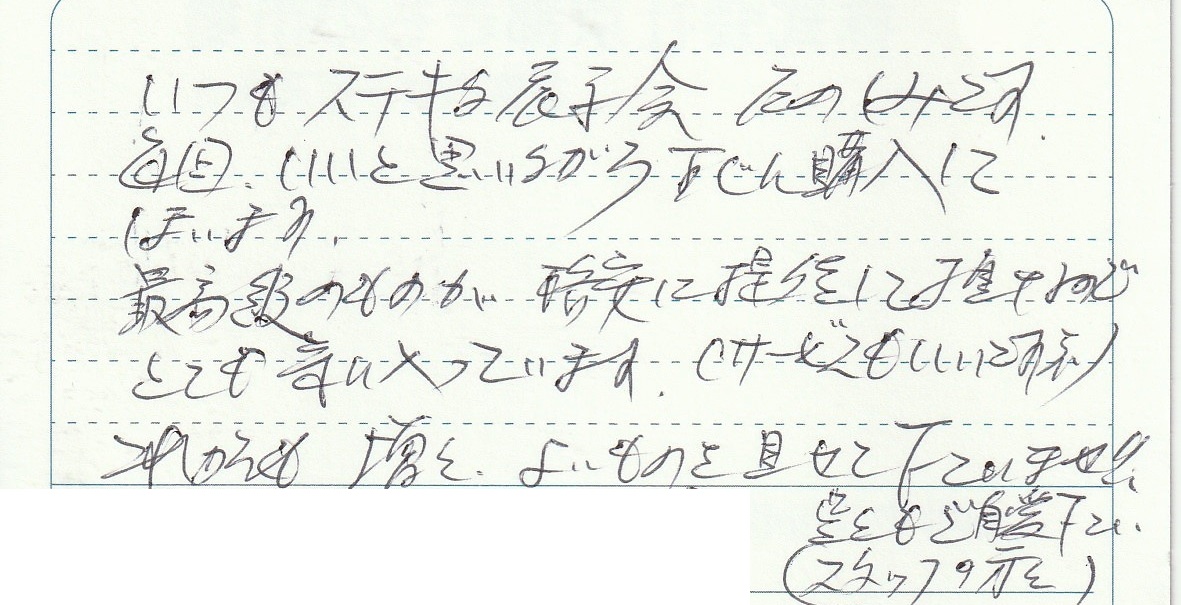 いつも ステキな展示会 たのしみです.
毎回、いいと思いながら 下どん購入して
しまいます.
最高級のものが 格安に提供して頂けますので
とても気に入っています. (サービスもいいですネ)
これからも 増々、よいものを見せて下さいませ.
皆々もご自愛下さい.
(スタッフの方々)